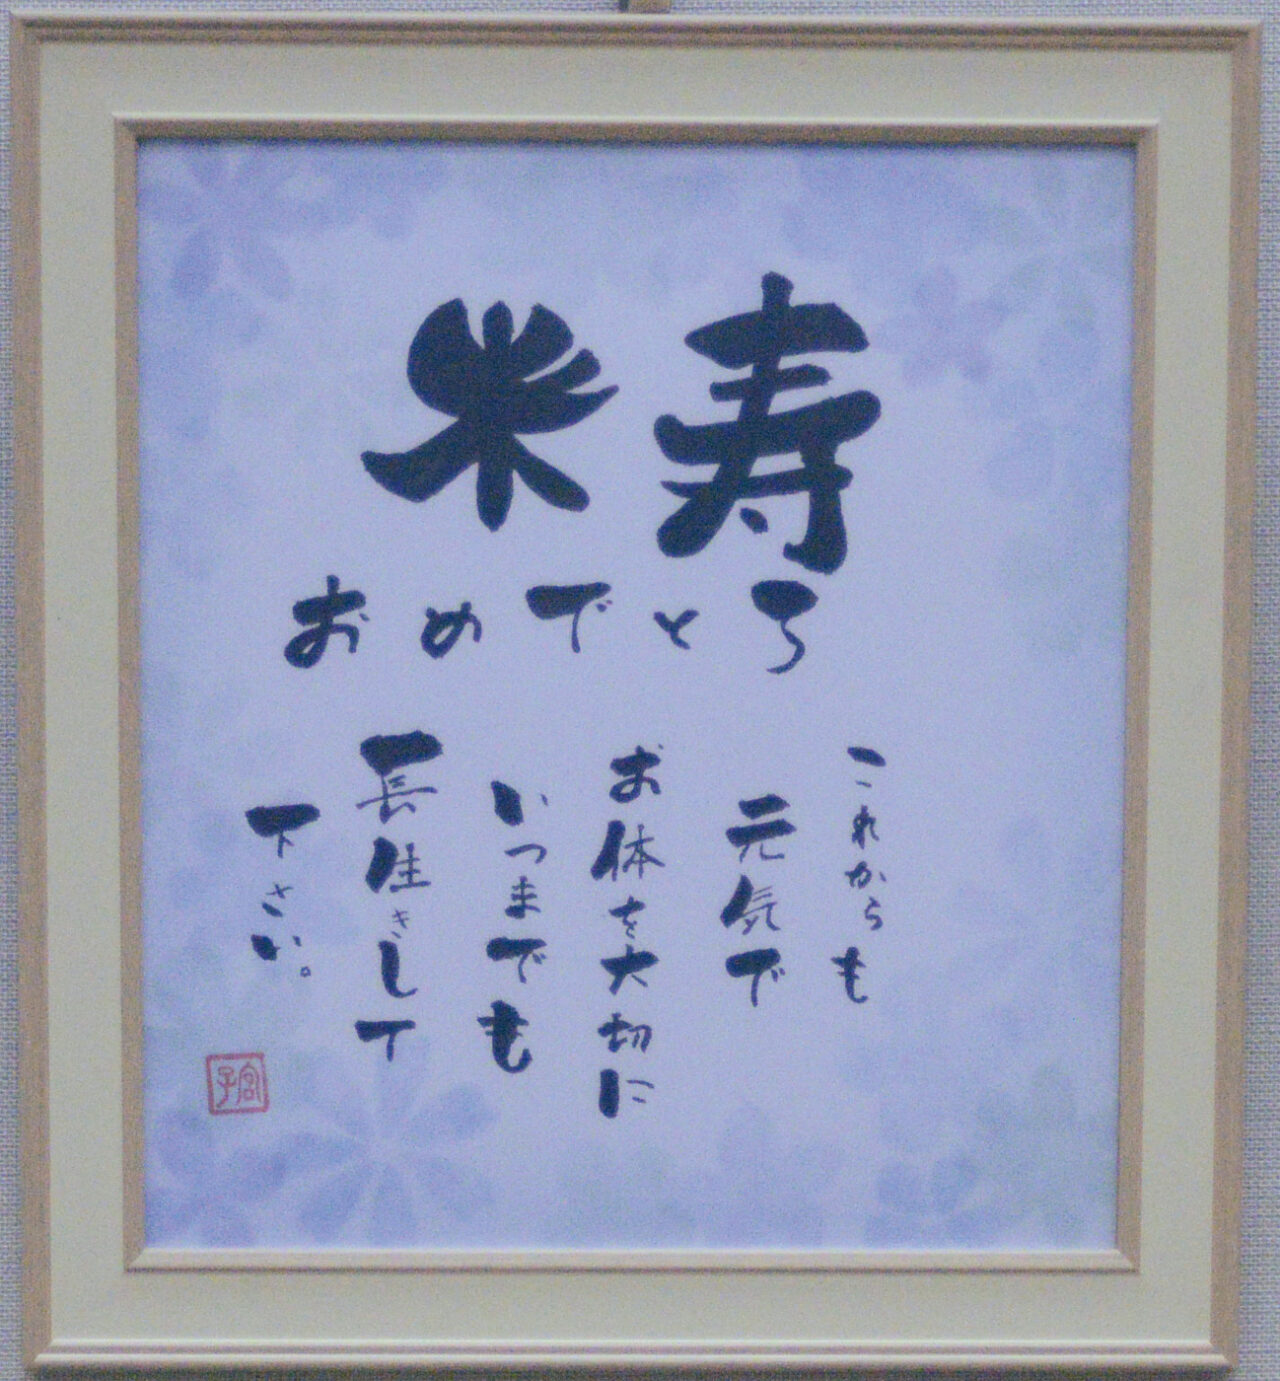 米寿
おめでとう
これからも
元気で
お体を大切に
いつまでも
長生きして
下さい。